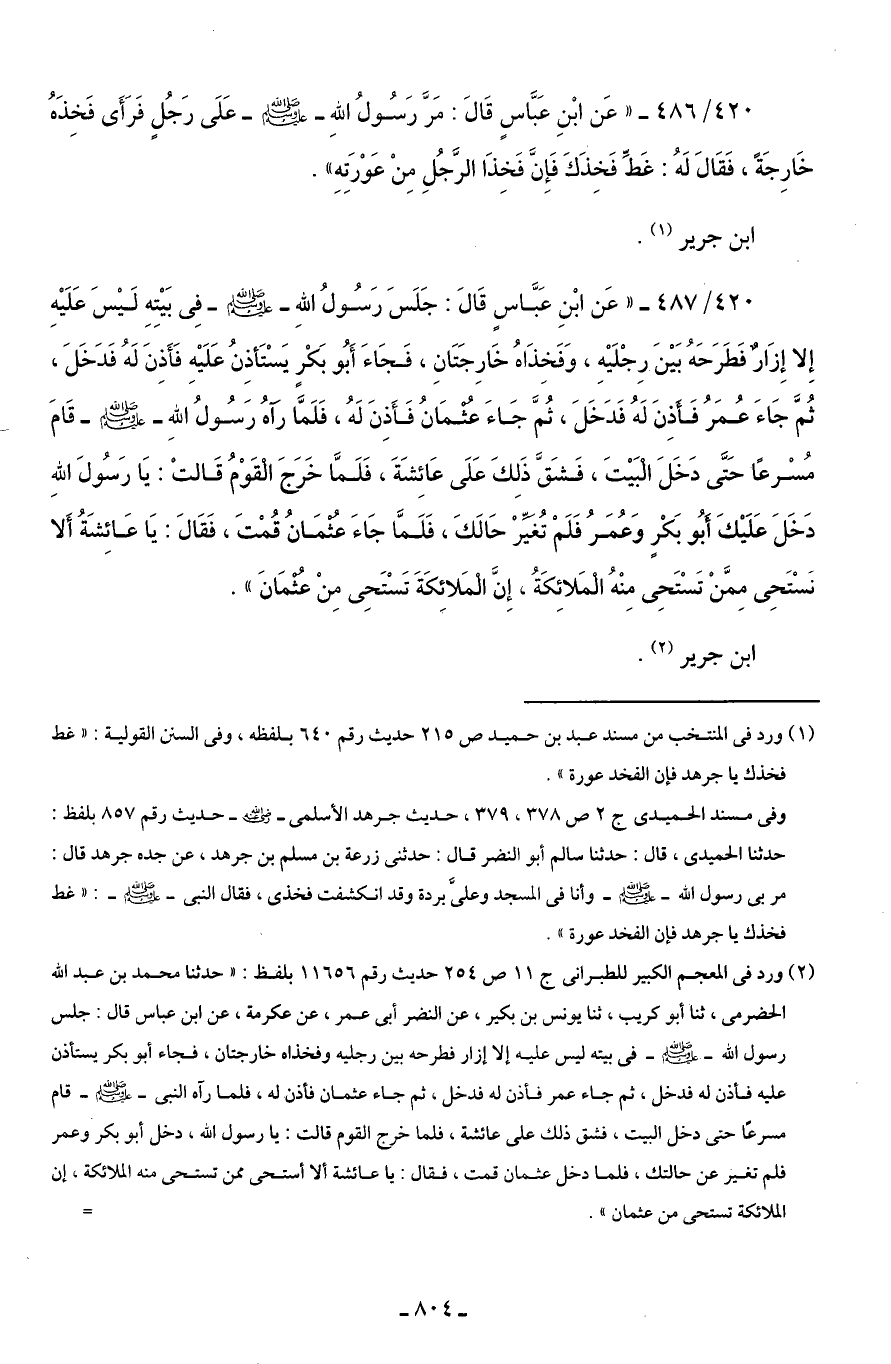 ٤٨٦/٤٢٠ ـ « عَن ابْنِ عَبَّاسٍ قَالَ : مَرَّ رَسُولُ اللهِ ـ ﷺ ـ عَلَى رَجُلٍ فَرَأَى فَخِذَهُ
خَارِجَةً ، فَقَالَ لَهُ : غَطِّ فَخِذَكَ فَإِنَّ فَخِذَا الرَّجُلِ مِنْ عَوْرَتِهِ» .
ابن جرير (١) .
٤٨٧/٤٢٠ ـ « عَن ابْنِ عَبَّاسٍ قَالَ : جَلَسَ رَسُولُ اللهِ ـ ﷺ ـ فِى بَيْتِهِ لَيْسَ عَلَيْهِ
إِلا إِزَارٌ فَطَرَحَهُ بَيْنَ رِجْلَيْهِ ، وَفَخِذَاهُ خَارِجَتَانِ ، فَجَاءَ أَبُو بَكْرٍ يَسْتَأذِنُ عَلَيْهِ فَأَذِنَ لَهُ فَدَخَلَ ،
ثُمَّ جَاءَ عُمَرُ فَأَذِنَ لَهُ فَدَخَلَ ، ثُمَّ جَاءَ عُثْمَانُ فَأَذِنَ لَهُ ، فَلَمَّا رَآهُ رَسُولُ اللهِ ـ ﷺ ـ قَامَ
مُسْرِعًا حَتَّى دَخَلَ الْبَيْتَ ، فَشَقَّ ذَلِكَ عَلَى عَائِشَةَ ، فَلَمَّا خَرَجَ الْقَوْمُ قَالَتْ : يَا رَسُولَ اللهِ
دَخَلَ عَلَيْكَ أَبُو بَكْرٍ وَعُمَرُ فَلَمْ تُغَيِّرْ حَالَكَ ، فَلَمَّا جَاءَ عُثْمَانُ قُمْتَ ، فَقَالَ : يَا عَائِشَةُ أَلا
نَسْتَحِى مِمَّنْ تَسْتَحِى مِنْهُ الْمَلائِكَةُ ، إِنَّ الْمَلائِكَةَ تَسْتَحِى مِنْ عُثْمَانَ » .
ابن جرير (٢) .
(١) ورد فى المنتخب من مسند عبد بن حميد ص ٢١٥ حديث رقم ٦٤٠ بلفظه ، وفى السنن القولية : « غط
فخذك يا جرهد فإن الفخد عورة » .
وفى مسند الحميدى ج ٢ ص ٣٧٨ ، ٣٧٩ ، حديث جرهد الأسلمى ـ رضي الله عنه ـ حديث رقم ٨٥٧ بلفظ :
حدثنا الحميدى ، قال : حدثنا سالم أبو النضر قال : حدثنى زرعة بن مسلم بن جرهد ، عن جده جرهد قال :
مر بى رسول الله ـ ﷺ ـ وأنا فى المسجد وعلىَّ بردة وقد انكشفت فخذى ، فقال النبى ـ ﷺ ـ : « غط
فخذك يا جرهد فإن الفخد عورة » .
(٢) ورد فى المعجم الكبير للطبرانى ج ١١ ص ٢٥٤ حديث رقم ١١٦٥٦ بلفظ : « حدثنا محمد بن عبد الله
الحضرمى ، ثنا أبو كريب ، ثنا يونس بن بكير ، عن النضر أبى عمر ، عن عكرمة ، عن ابن عباس قال : جلس
رسول الله ـ ﷺ ـ فى بيته ليس عليه إلا إزار فطرحه بين رجليه وفخذاه خارجتان ، فجاء أبو بكر يستأذن
عليه فأذن له فدخل ، ثم جاء عمر فأذن له فدخل ، ثم جاء عثمان فأذن له ، فلما رآه النبى ـ ﷺ ـ قام
مسرعًا حتى دخل البيت ، فشق ذلك على عائشة ، فلما خرج القوم قالت : يا رسول الله ، دخل أبو بكر وعمر
فلم تغير عن حالتك ، فلما دخل عثمان قمت ، فقال : يا عائشة ألا أستحى ممن تستحى منه الملائكة ، إن
الملائكة تستحى من عثمان » . =
ـ ٨٠٤ ـ